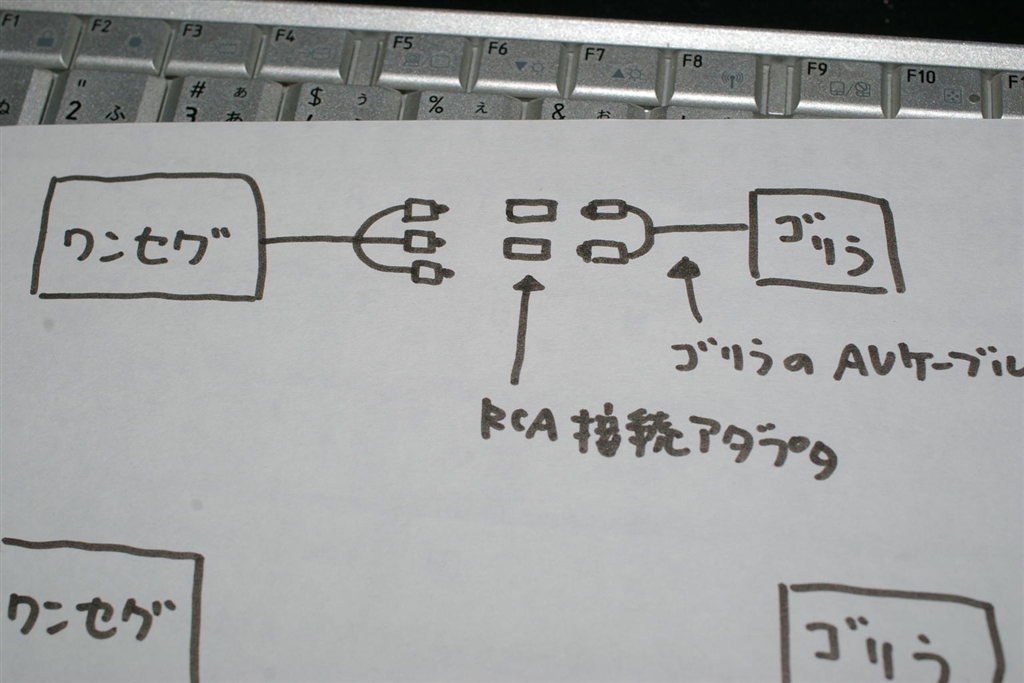 F1 F2 F3 F4 F5 F6 F7 F8 F9 F10
ぬ " 2 ふ # ぁ 3 あ $ ぅ % ぇ & ぉ
ワンセグ
ゴリラ
ゴリラの AVケーブル
RCA 接続アダプタ
ワンセグ
ゴリラ